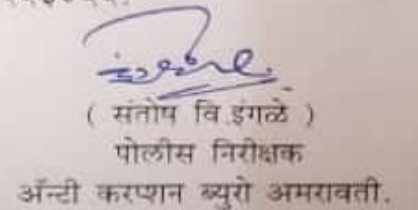 ( संतोष वि.इंगळे )
पोलीस निरीक्षक
अ‍ॅन्टी करप्शन ब्युरो अमरावती.